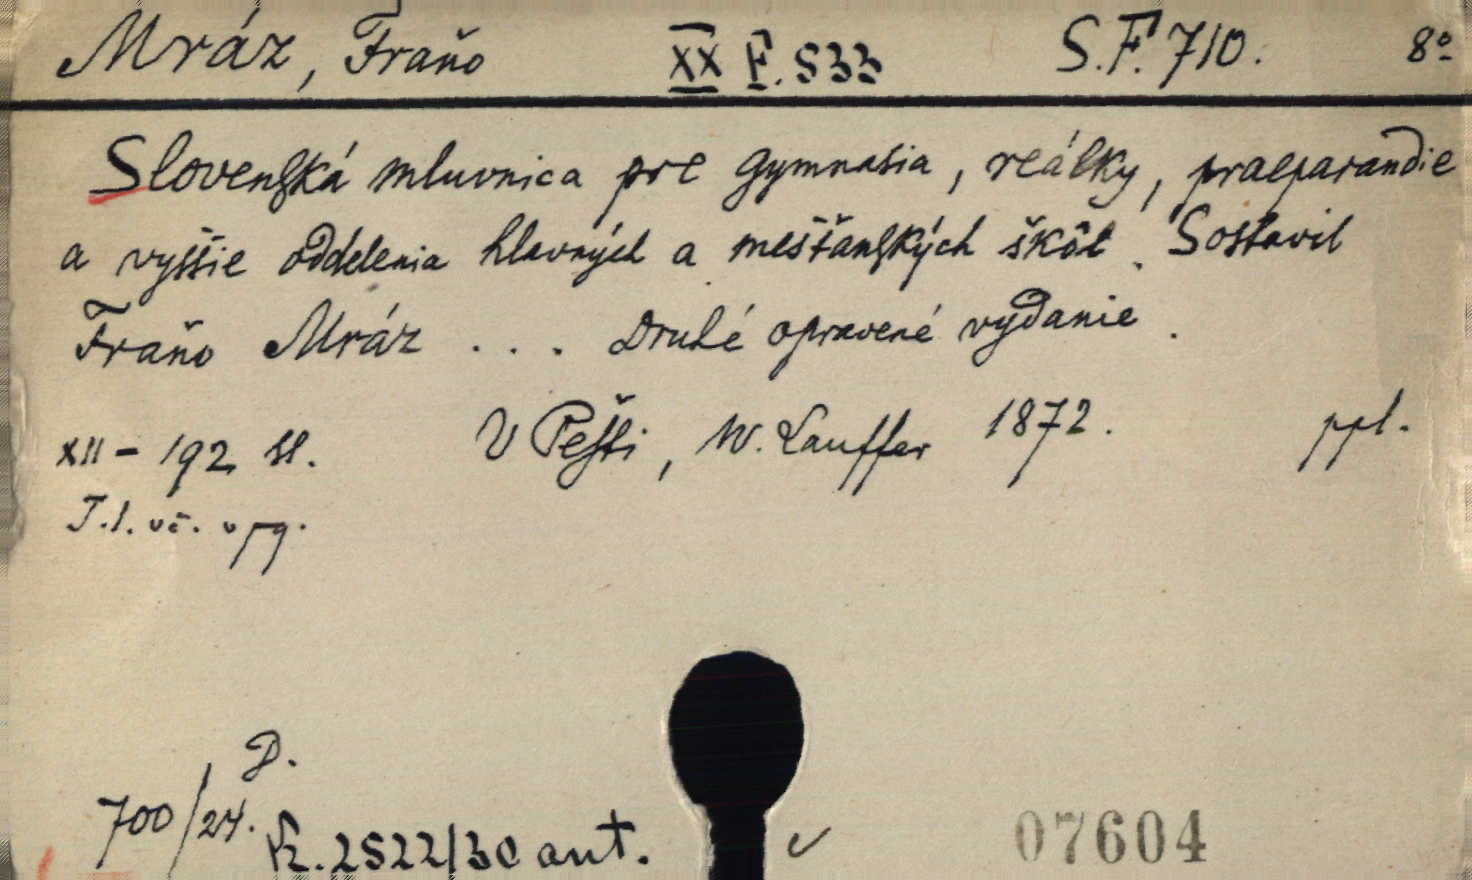 Mráz, Fraňo XX F. 533 S.F. 710. 8º
Slovenská mluvnica pre gymnasia, reálky, praeparandie
a vyššie oddelenia hlavných a mešťanských škôl. Sostavil
Fraňo Mráz ... Druhé opravené vydanie.
XII - 192 st. V Pešti, W. Lauffer 1872. ppl.
T.l. vč. v pg.
D.
700/24.
K. 2522/30 ant.
07604